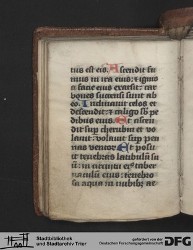 tus est eis. Ascendit fu
mus in ira eius: et ignis
a facie eius exarsit: car
bones succensi sunt ab
eo. Inclinavit celos et
descendit: et caligo sub pe
dibus eius. Et ascen
dit sup cherubin et vo
lavit: volavit sup pen
nas ventor. Et posu
it tenebras latibulum su
um: in circuitu eius taber
naculum eius: tenebro
sa aqua in nubibus
Stadtbibliothek
und Stadtarchiv Trier
gefördert von der
DFG